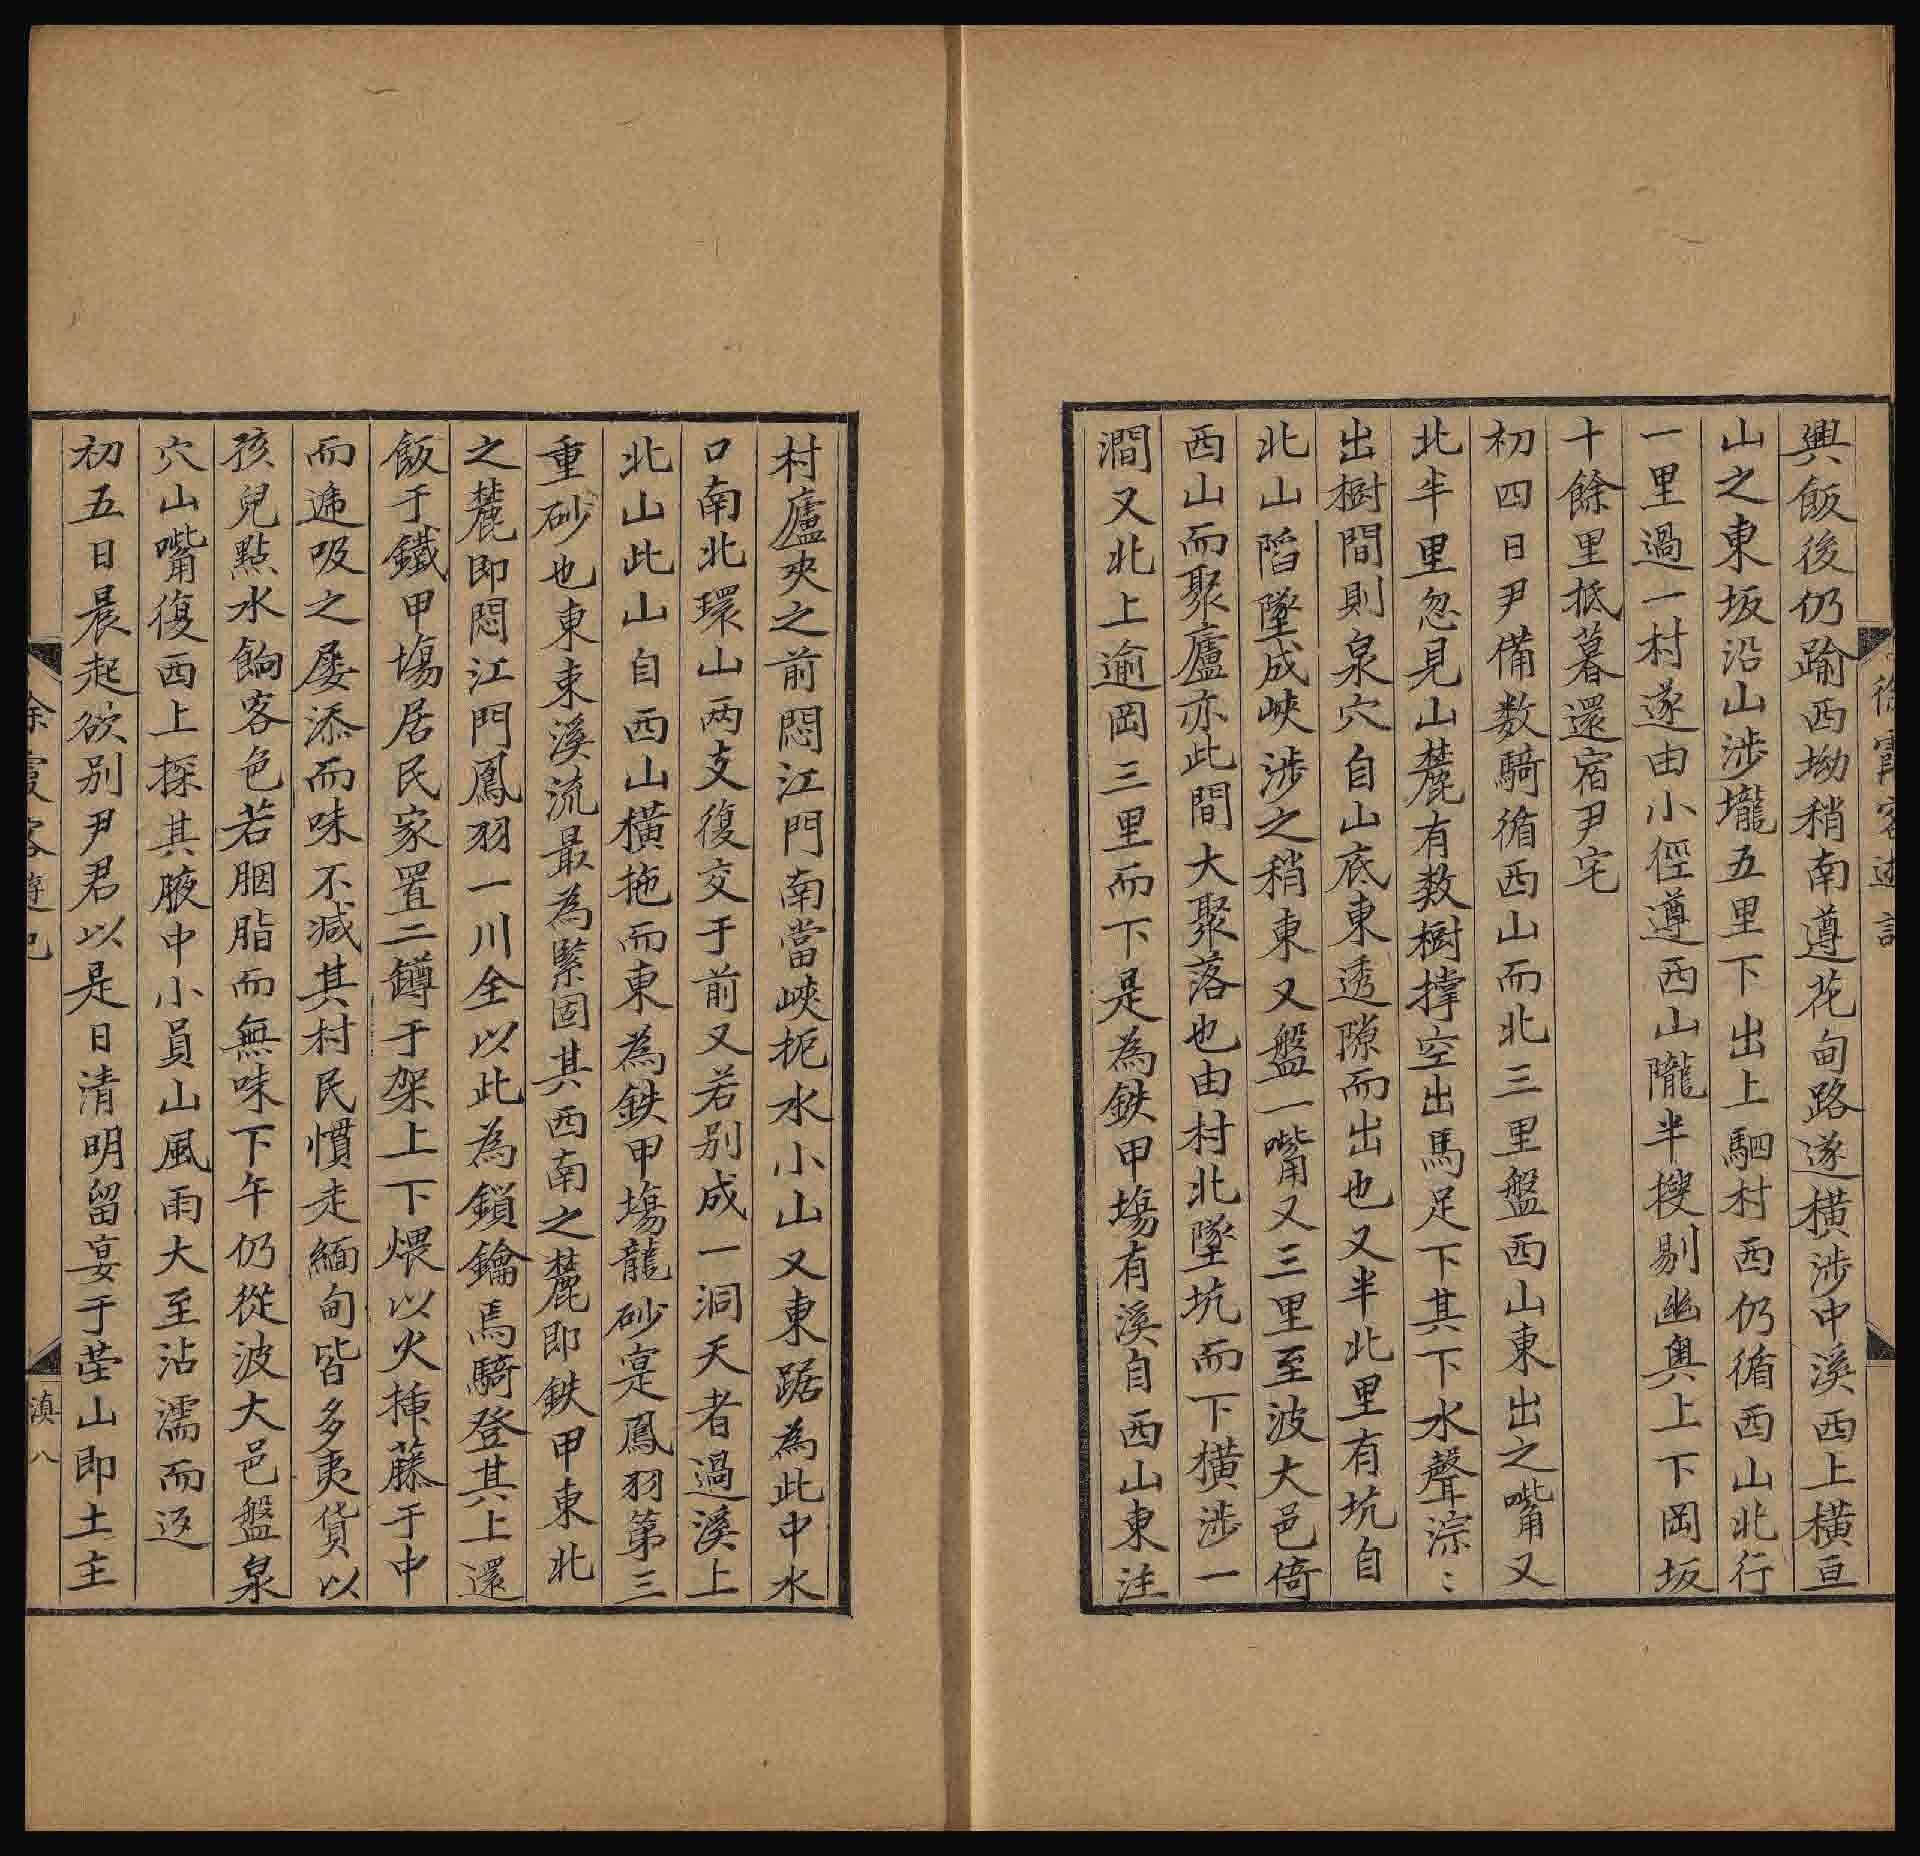 徐霞客遊記
輿飯後仍踰西坳稍南遵花甸路遂橫涉中溪西上橫亘
山之東坂沿山涉壠五里下出上駟村西仍循西山北行
一里過一村遂由小徑遵西山隴半搜剔幽輿上下岡坂
十餘里抵暮還宿尹宅
初四日尹備数騎循西山而北三里盤西山東出之嘴又
北半里忽見山麓有数樹撐空出馬足下其下水聲淙〻
出樹間則泉穴自山底東透隙而出也又半北里有坑自
北山陷墜成峽涉之稍東又盤一嘴又三里至波大邑倚
西山而聚廬亦此間大聚落也由村北墜坑而下橫涉一
澗又北上逾岡三里而下是為鉄甲塲有溪自西山東注
村廬夾之前悶江門南當峽扼水小山又東踞為此中水
口南北環山两支復交于前又若别成一洞天者過溪上
北山此山自西山橫拖而東為鉄甲塲龍砂寔鳳羽第三
重砂也東東溪流最為緊固其西南之麓即鉄甲東北
之麓即悶江門鳳羽一川全以此為鎖鑰焉騎登其上還
飯于鐵甲塲居民家置二罇于架上下煨以火揷藤于中
而遞吸之屡添而味不减其村民慣走緬甸皆多夷貨以
孩兒㸃水餉客色若胭脂而無味下午仍從波大邑盤泉
穴山嘴復西上探其腋中小員山風雨大至沾濡而返
初五日晨起欲别尹君以是日清明留宴于塋山即土主
徐霞客遊記
滇八